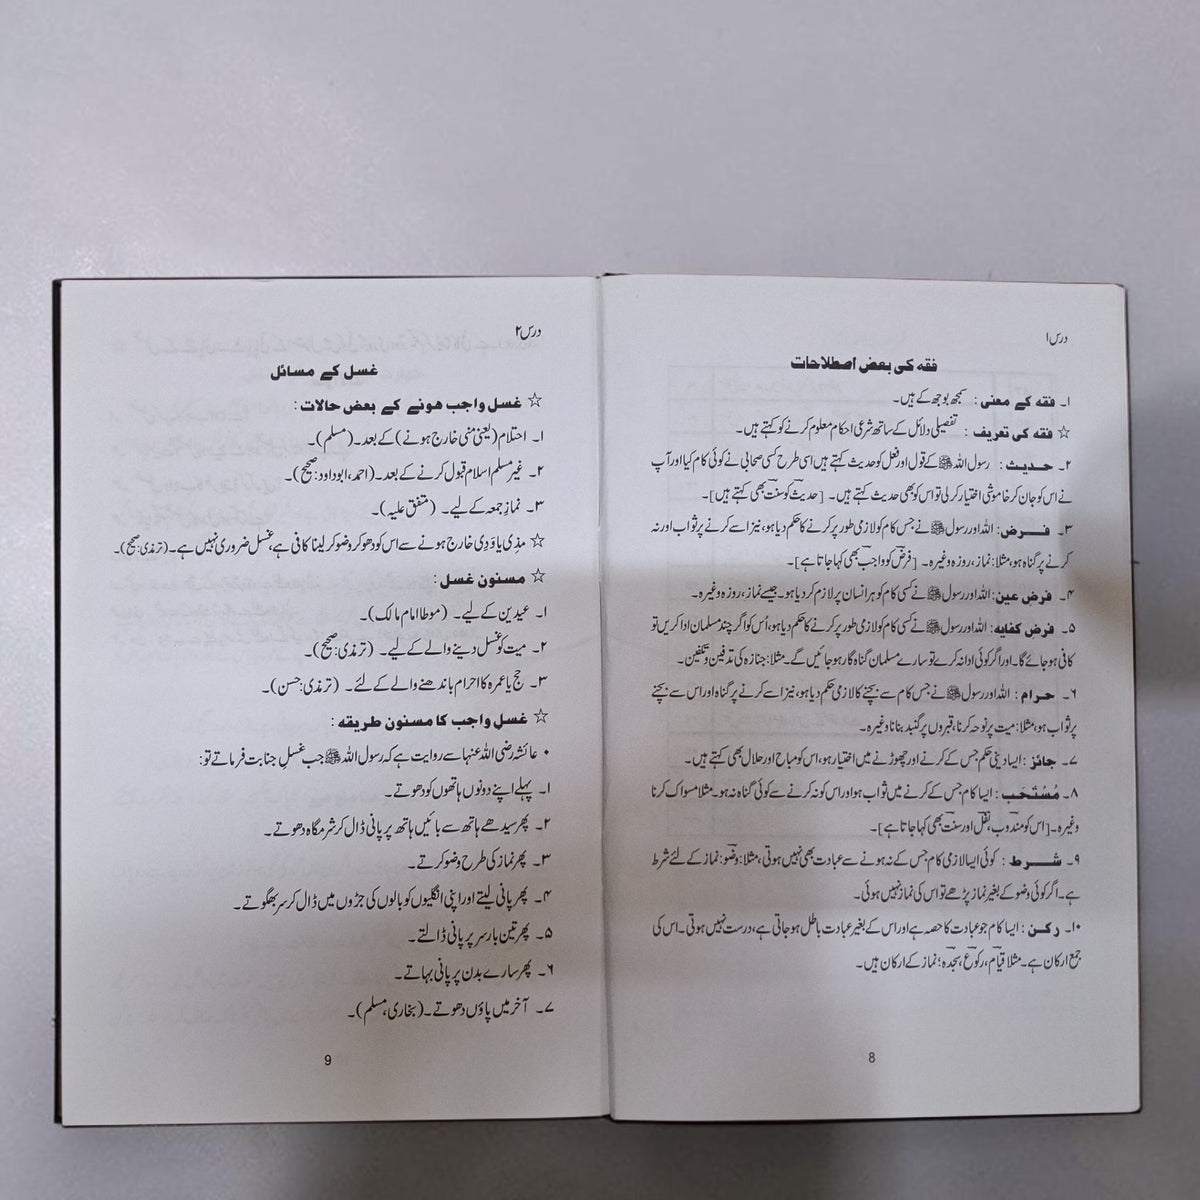 درس ۱
فقه کی بعض اصطلاحات
۱۔ فقه کے معنی : سمجھ بوجھ کے ہیں۔
☆ فقه کی تعریف : تفصیلی دلائل کے ساتھ شرعی احکام معلوم کرنے کو کہتے ہیں۔
۲۔ حدیث : رسول اللہ ﷺ کے قول اور فعل کو حدیث کہتے ہیں اسی طرح کسی صحابی نے کوئی کام کیا اور آپ
نے اس کو جان کر خاموشی اختیار کر لی تو اس کو بھی حدیث کہتے ہیں۔ [حدیث کو سنت بھی کہتے ہیں]۔
۳۔ فرض : اللہ اور رسول ﷺ نے جس کام کو لازمی طور پر کرنے کا حکم دیا ہو، نیز اسے کرنے پر ثواب اور نہ
کرنے پر گناہ ہو، مثلا: نماز، روزہ وغیرہ۔ [فرض کو واجب بھی کہا جاتا ہے]۔
۴۔ فرض عین: اللہ اور رسول ﷺ نے کسی کام کو ہر انسان پر لازم کر دیا ہو۔ جیسے نماز، روزہ وغیرہ۔
۵۔ فرض کفایه: اللہ اور رسول ﷺ نے کسی کام کو لازمی طور پر کرنے کا حکم دیا ہو، اُس کو اگر چند مسلمان ادا کریں تو
کافی ہو جائے گا۔ اور اگر کوئی ادا نہ کرے تو سارے مسلمان گناہ گار ہو جائیں گے۔ مثلا: جنازہ کی تدفین و تکفین۔
۶۔ حرام : اللہ اور رسول ﷺ نے جس کام سے بچنے کا لازمی حکم دیا ہو، نیز اسے کرنے پر گناہ اور اس سے بچنے
پر ثواب ہو، مثلا: میت پر نوحہ کرنا، قبروں پر گنبد بنانا وغیرہ۔
۷۔ جائز : ایسا دینی حکم جس کے کرنے اور چھوڑنے میں اختیار ہو، اس کو مباح اور حلال بھی کہتے ہیں۔
۸۔ مُستَحَب : ایسا کام جس کے کرنے میں ثواب ہو اور اس کو نہ کرنے سے کوئی گناہ نہ ہو۔ مثلا مسواک کرنا
وغیرہ۔ [اس کو مندوب، نفل اور سنت بھی کہا جاتا ہے]۔
۹۔ شرط : کوئی ایسا لازمی کام جس کے نہ ہونے سے عبادت بھی نہیں ہوتی، مثلا: وضو: نماز کے لئے شرط
ہے۔ اگر کوئی وضو کے بغیر نماز پڑھے تو اس کی نماز نہیں ہوئی۔
۱۰۔ رکن : ایسا کام جو عبادت کا حصہ ہے اور اس کے بغیر عبادت باطل ہو جاتی ہے، درست نہیں ہوتی۔ اس کی
جمع ارکان ہے۔ مثلا قیام، رکوع، سجدہ؛ نماز کے ارکان ہیں۔
8
درس ۲
غسل کے مسائل
☆ غسل واجب هونے کے بعض حالات :
۱۔ احتلام (یعنی منی خارج ہونے) کے بعد۔ (مسلم)۔
۲۔ غیر مسلم اسلام قبول کرنے کے بعد۔ (احمد، ابوداود: صحیح)۔
۳۔ نماز جمعہ کے لیے۔ (متفق علیہ)۔
☆ مذِی یا وَدِی خارج ہونے سے اس کو دھو کر وضو کر لینا کافی ہے، غسل ضروری نہیں ہے۔ (ترمذی: صحیح)۔
☆ مسنون غسل :
۱۔ عیدین کے لیے۔ (موطا امام مالک)۔
۲۔ میت کو غسل دینے والے کے لیے۔ (ترمذی: صحیح)۔
۳۔ حج یا عمرہ کا احرام باندھنے والے کے لئے۔ (ترمذی: حسن)۔
☆ غسلِ واجب کا مسنون طریقه :
• عائشہ رضی اللہ عنہا سے روایت ہے کہ رسول اللہ ﷺ جب غسلِ جنابت فرماتے تو:
۱۔ پہلے اپنے دونوں ہاتھوں کو دھوتے۔
۲۔ پھر سیدھے ہاتھ سے بائیں ہاتھ پر پانی ڈال کر شرمگاہ دھوتے۔
۳۔ پھر نماز کی طرح وضو کرتے۔
۴۔ پھر پانی لیتے اور اپنی انگلیوں کو بالوں کی جڑوں میں ڈال کر سر بھگوتے۔
۵۔ پھر تین بار سر پر پانی ڈالتے۔
۶۔ پھر سارے بدن پر پانی بہاتے۔
۷۔ آخر میں پاؤں دھوتے۔ (بخاری، مسلم)۔
9